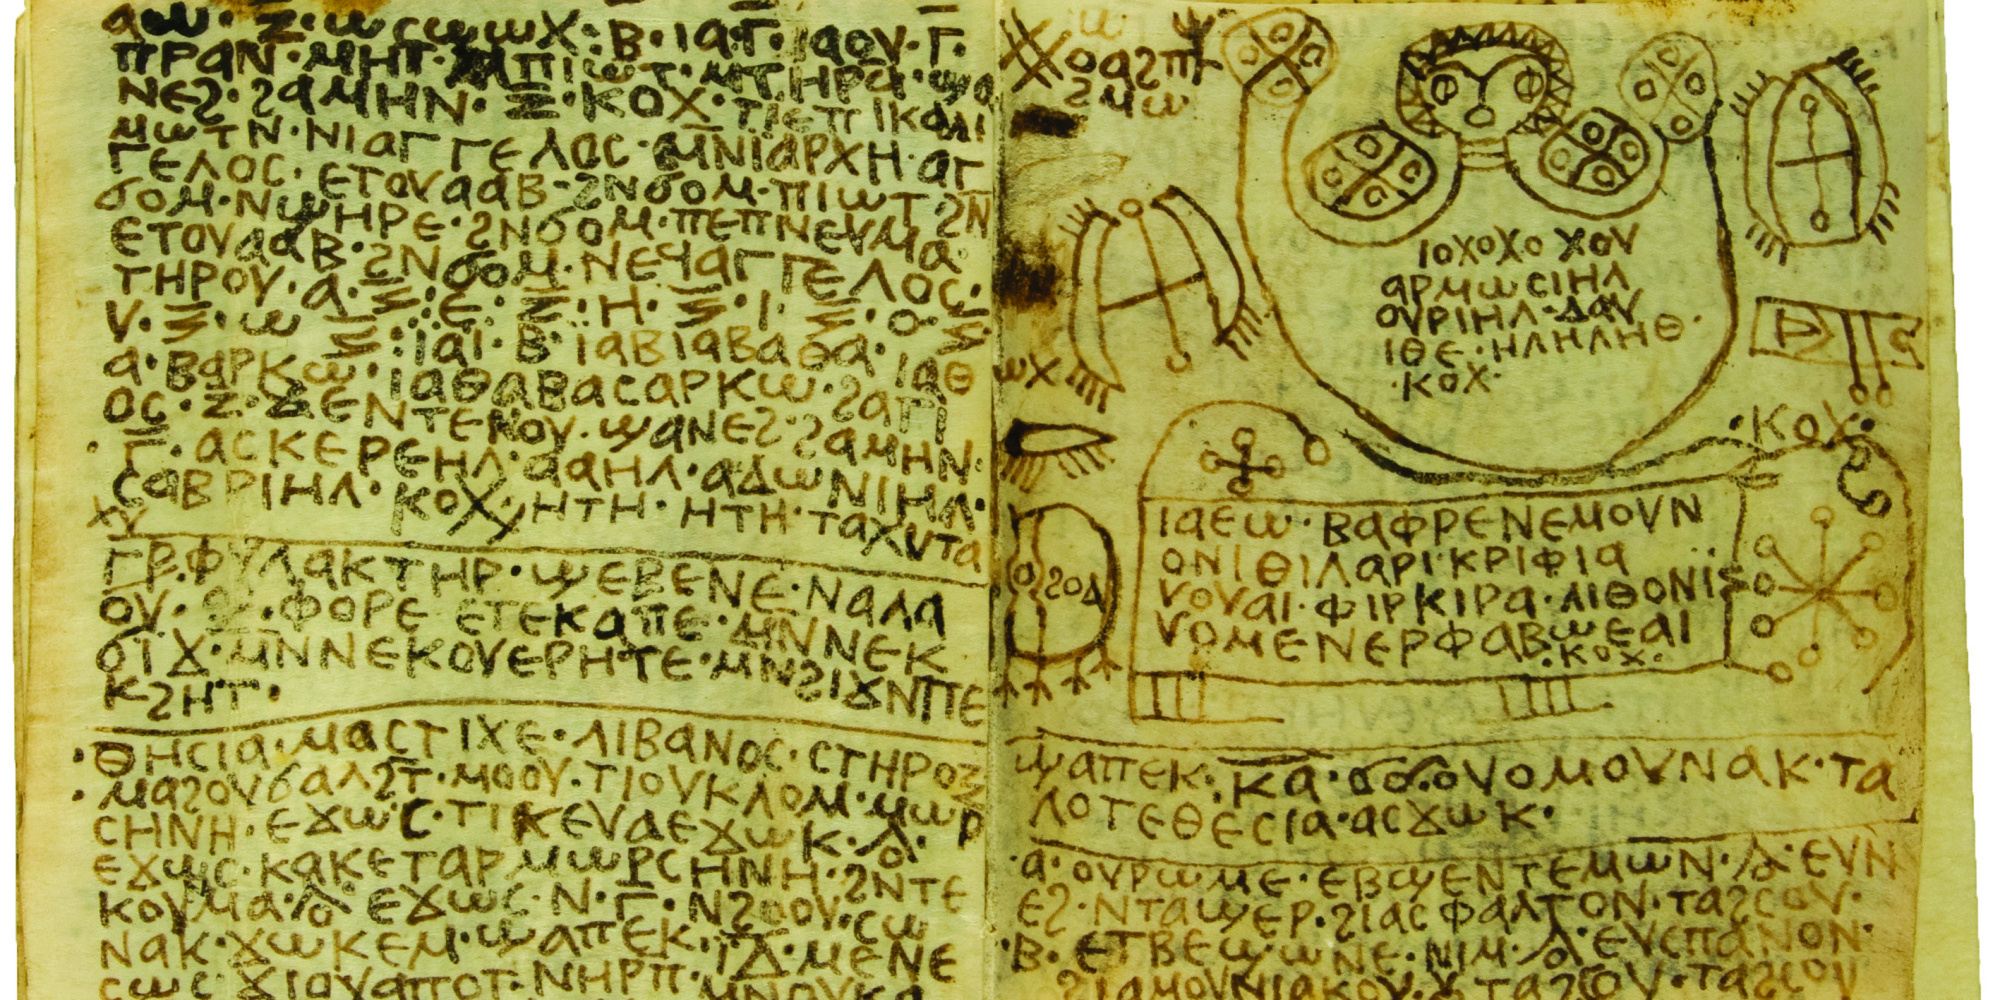 ⲁⲱ · ⲍ̅ · ⲱⲥⲱⲱⲭ : ⲃ · ⲓⲁ · ⲅ̅ · ⲓⲁⲟⲩ · ⲅ̅ ·
ⲡⲣⲁⲛ · ⲙⲏⲧ ⲡⲓⲱⲧ · ⲙⲡⲧⲏⲣⲁ · ϣⲁ
ⲛⲉϩ · ϩⲁⲙⲏⲛ · ⲝ · ⲕⲟⲭ · ϯⲉⲡⲓⲕⲁⲗⲓ
ⲙⲱⲧⲛ · ⲛⲓⲁⲅⲅⲉⲗⲟⲥ · ⲙⲛⲓⲁⲣⲭⲏ · ⲁⲅ
ⲅⲉⲗⲟⲥ · ⲉⲧⲟⲩⲁⲁⲃ · ϩⲛϭⲟⲙ · ⲡⲓⲱⲧ · ϩⲛ
ϭⲟⲙ · ⲛϣⲏⲣⲉ · ϩⲛϭⲟⲙ · ⲡⲉⲡⲛⲉⲩⲙⲁ
ⲉⲧⲟⲩⲁⲁⲃ · ϩⲛϭⲟⲙ · ⲛⲉϥⲁⲅⲅⲉⲗⲟⲥ ·
ⲧⲏⲣⲟⲩ · ⲁ · ⲝ · ⲉ · ⲝ · ⲏ · ⲝ · ⲓ · ⲝ · ⲟ · ⲝ ·
ⲩ · ⲝ · ⲱ ⲝ : ⲓⲁⲓ · ⲃ · ⲓⲁⲃⲓⲁⲃⲁⲑⲁ · ⲓⲁⲑ
ⲁ · ⲃⲁⲣⲕⲱ · ⲓⲁⲑⲁⲃⲁⲥⲁⲣⲕⲱ · ϩⲁⲅⲓ
ⲟⲥ · ⲍ̅ · ϫⲉⲛⲧⲉⲕⲟⲩ · ϣⲁⲛⲉϩ · ϩⲁⲙⲏⲛ ·
· ⲅ̅ · ⲁⲥⲕⲉⲣⲉⲏⲗ · ⲁⲁⲏⲗ · ⲁⲇⲱⲛⲓⲏⲗ ·
ⲥⲁⲃⲣⲓⲏⲗ · ⲕⲟⲭ · ⲏⲧⲏ · ⲏⲧⲏ · ⲧⲁⲭⲩⲧⲁ
ⲭⲩ
ⲅⲣ · ⲫⲩⲗⲁⲕⲧⲏⲣ · ϣⲉⲃⲉⲛⲉ · ⲛⲁⲗⲁ
ⲟⲩ · ⲫⲟⲣⲉ ⲉⲧⲉⲕⲁⲡⲉ · ⲙⲛⲛⲉⲕ
ϭⲓϫ · ⲙⲛⲛⲉⲕⲟⲩⲉⲣⲏⲧⲉ · ⲙⲛϩⲓϫⲛⲡⲉ
ⲕϩⲏⲧ ·
· ⲑⲏⲥⲓⲁ · ⲙⲁⲥⲧⲓⲭⲉ · ⲗⲓⲃⲁⲛⲟⲥ · ⲥⲧⲏⲣⲟⲝ
· ⲙⲁϩⲟⲩϭⲁⲗϩⲧ · ⲙⲟⲟⲩ · ϯⲟⲩⲕⲗⲟⲙ · ⲙⲱⲣ
ⲥⲏⲛⲏ · ⲉϫⲱⲥ · ϯⲕⲉⲩⲁ ⲉϫⲱⲕ ·
ⲉϫⲱⲥ · ⲕⲁⲕⲉⲧⲁⲣ ⲙⲱⲣⲥⲏⲛⲏ · ϩⲛⲧⲉ
ⲕⲟⲩⲙⲁ · ⲉϫⲱⲥ · ⲛ · ⲅ · ⲛϩⲟⲟⲩ · ⲥⲱ
ⲛⲁⲕ · ϫⲱⲕⲉⲙ · ϣⲁⲡⲉⲕ · ⲓⲇ · ⲙⲉⲛⲉ
ⲥⲱⲥ ϫⲓⲟⲩⲁⲡⲟⲧ · ⲛⲏⲣⲡ ·
ⲓⲟⲭⲟⲭⲟ ⲭⲟⲩ
ⲁⲣⲙⲱⲥⲓⲏⲗ
ⲟⲩⲣⲓⲏⲗ · ⲇⲁⲩ
ⲓⲑⲉ · ⲏⲗⲏⲗⲏⲑ ·
· ⲕⲟⲭ ·
ⲱⲭ
· ⲕⲟⲭ ·
ⲓⲁⲉⲱ · ⲃⲁⲫⲣⲉⲛⲉⲙⲟⲩⲛ
ⲟⲛⲓⲑⲓⲗⲁⲣⲓ · ⲕⲣⲓⲫⲓⲁ
ⲩⲟⲩⲁⲓ · ⲫⲓⲣⲕⲓⲣⲁ · ⲗⲓⲑⲟⲛⲓ
ⲩⲟⲙⲉⲛⲉⲣⲫⲁⲃⲱⲉⲁⲓ
· ⲕⲟⲭ ·
ϣⲁⲡⲉⲕ · ⲕⲁ · ϭϭⲟⲩⲟⲙⲟⲩⲛⲁⲕ · ⲧⲁ
ⲗⲟⲧⲉⲑⲉⲥⲓⲁ · ⲁⲥϫⲱⲕ ·
· ⲁ · ⲟⲩⲣⲱⲙⲉ · ⲉⲃϣⲉⲛⲧⲉⲙⲱⲛ · ⲉⲩⲛ
ⲉϩ · ⲛⲧⲁϣⲉⲣ · ϩⲓⲁⲥⲫⲁⲗⲧⲟⲛ · ⲧⲁϩⲥⲟⲩ ·
· ⲃ · ⲉⲧⲃⲉϣⲱⲛⲉ · ⲛⲓⲙ · ⲉⲩⲉⲡⲁⲛⲟⲛ ·